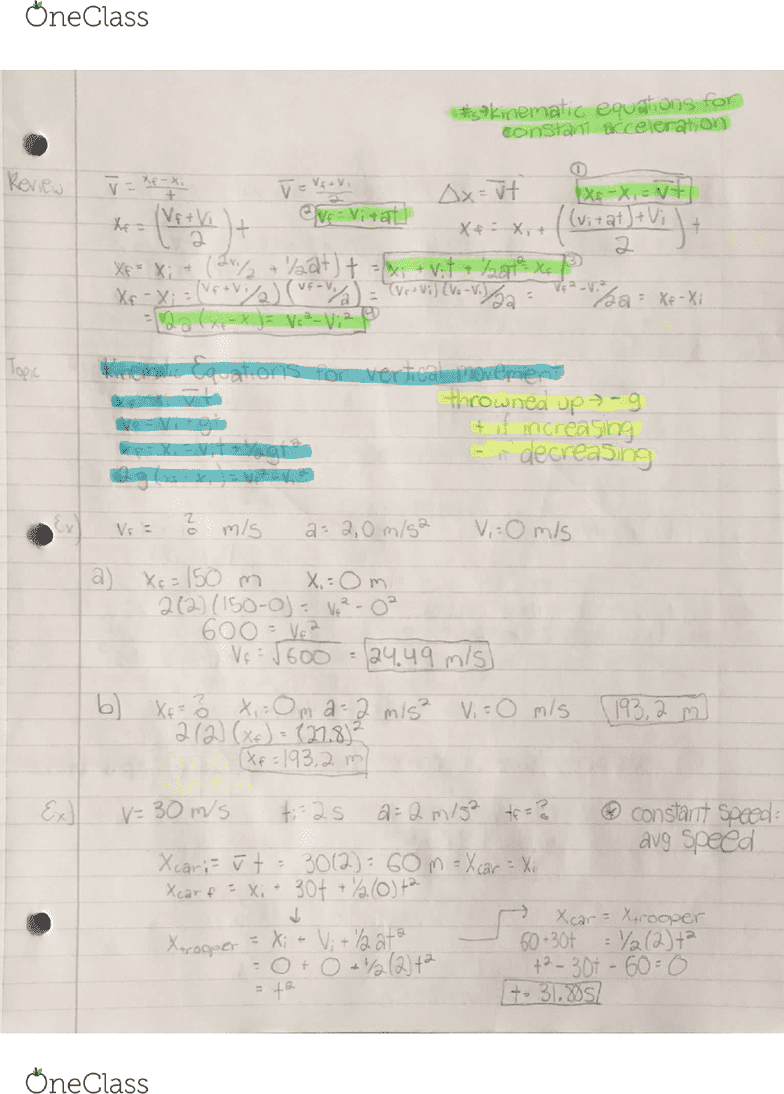 OneClass
kinematic equations for
constant acceleration
Review v̄ = xf - xi / t v̄ = vf + vi / 2 Δx = v̄t ① xf - xi = v̄t
xf = (vf + vi / 2) t ② vf = vi + at xf = xi + ((vi + at) + vi / 2) t
xf = xi + (2vi/2 + 1/2at) t = xi + vit + 1/2at² = xf ③
xf - xi = (vf + vi/2)(vf - vi/a) = (vf + vi)(vf - vi)/2a = vf² - vi²/2a = xf - xi
= 2a(xf - x) = vf² - vi² ④
Topic Kinematic Equations for vertical movement
v̄t throwned up → - g
vf = vi - gt + if increasing
xf = xi - vit + 1/2gt² - decreasing
2g(xf - xi) = vf² - vi²
Ex) vf = ? m/s a = 2,0 m/s² vi = 0 m/s
a) xf = 150 m xi = 0 m
2(2)(150-0) = vf² - 0²
600 = vf²
vf = √600 = 24.49 m/s
b) xf = ? xi = 0 m a = 2 m/s² vi = 0 m/s 193,2 m
2(2)(xf) = (27.8)²
xf = 193,2 m
Ex) v = 30 m/s ti = 2 s a = 2 m/s² tf = ? * constant speed =
avg speed
xcari = v̄t = 30(2) = 60 m = xcar = xi
xcarf = xi + 30t + 1/2(0)t²
↓ → xcar = xtrooper
xtrooper = xi + vi + 1/2at² 60+30t = 1/2(2)t²
= 0 + 0 + 1/2(2)t² t² - 30t - 60 = 0
= t² t = 31.88s
OneClass